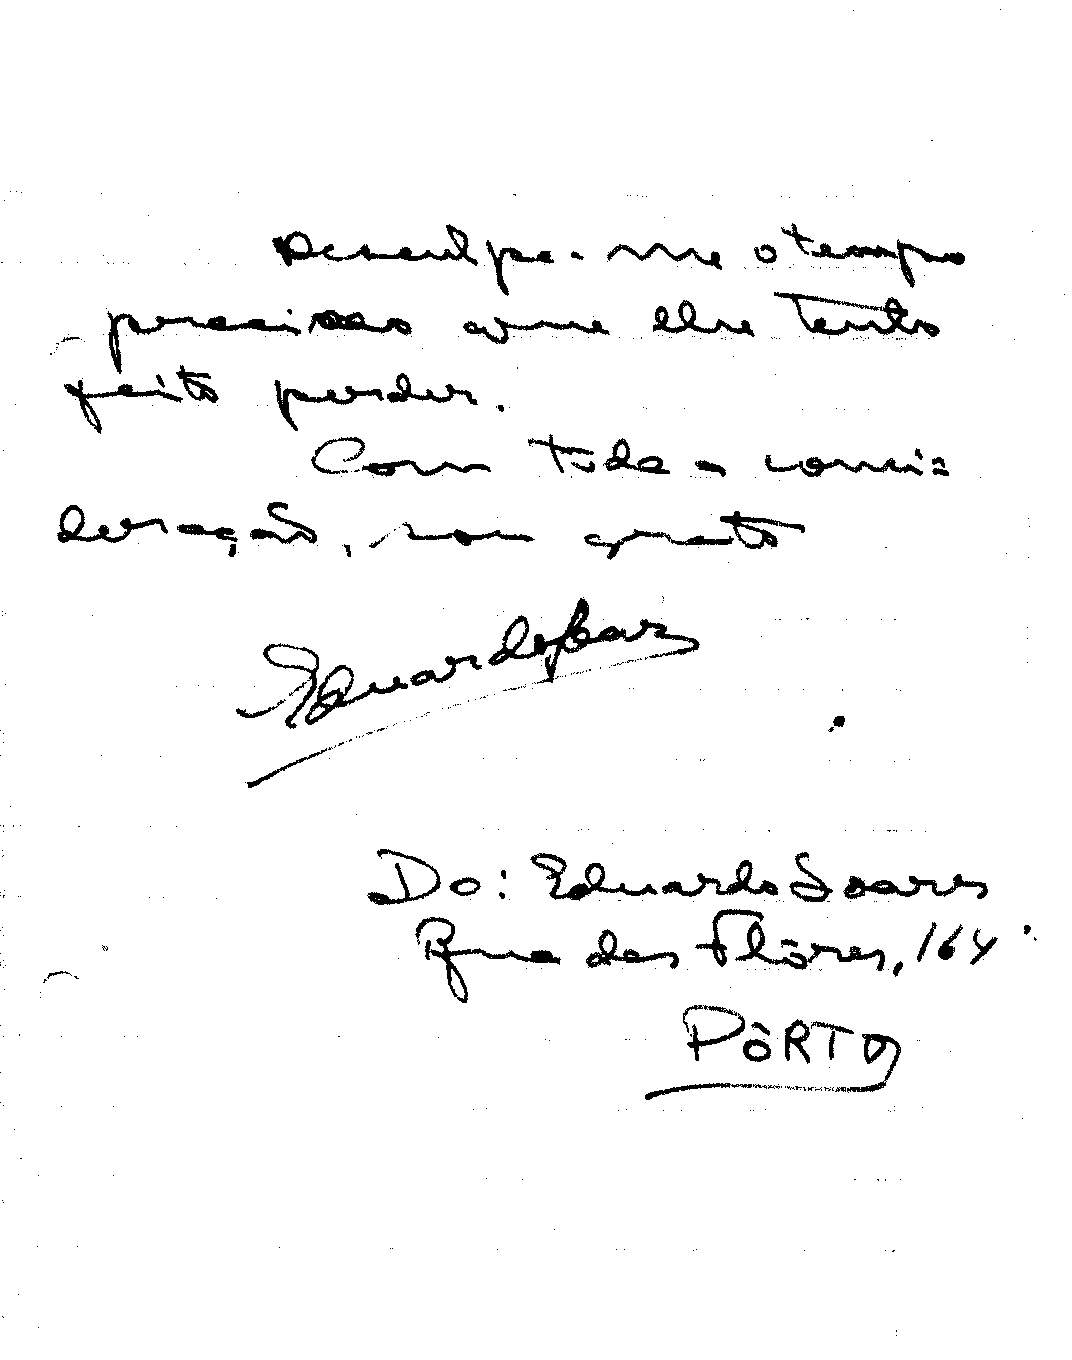 Desculpe-me o tempo
precioso que lhe tenho
feito perder.
Com toda a consi=
deração, sou grato
Eduardo Soares
Do: Eduardo Soares
Rua das Flôres, 164
PÔRTO